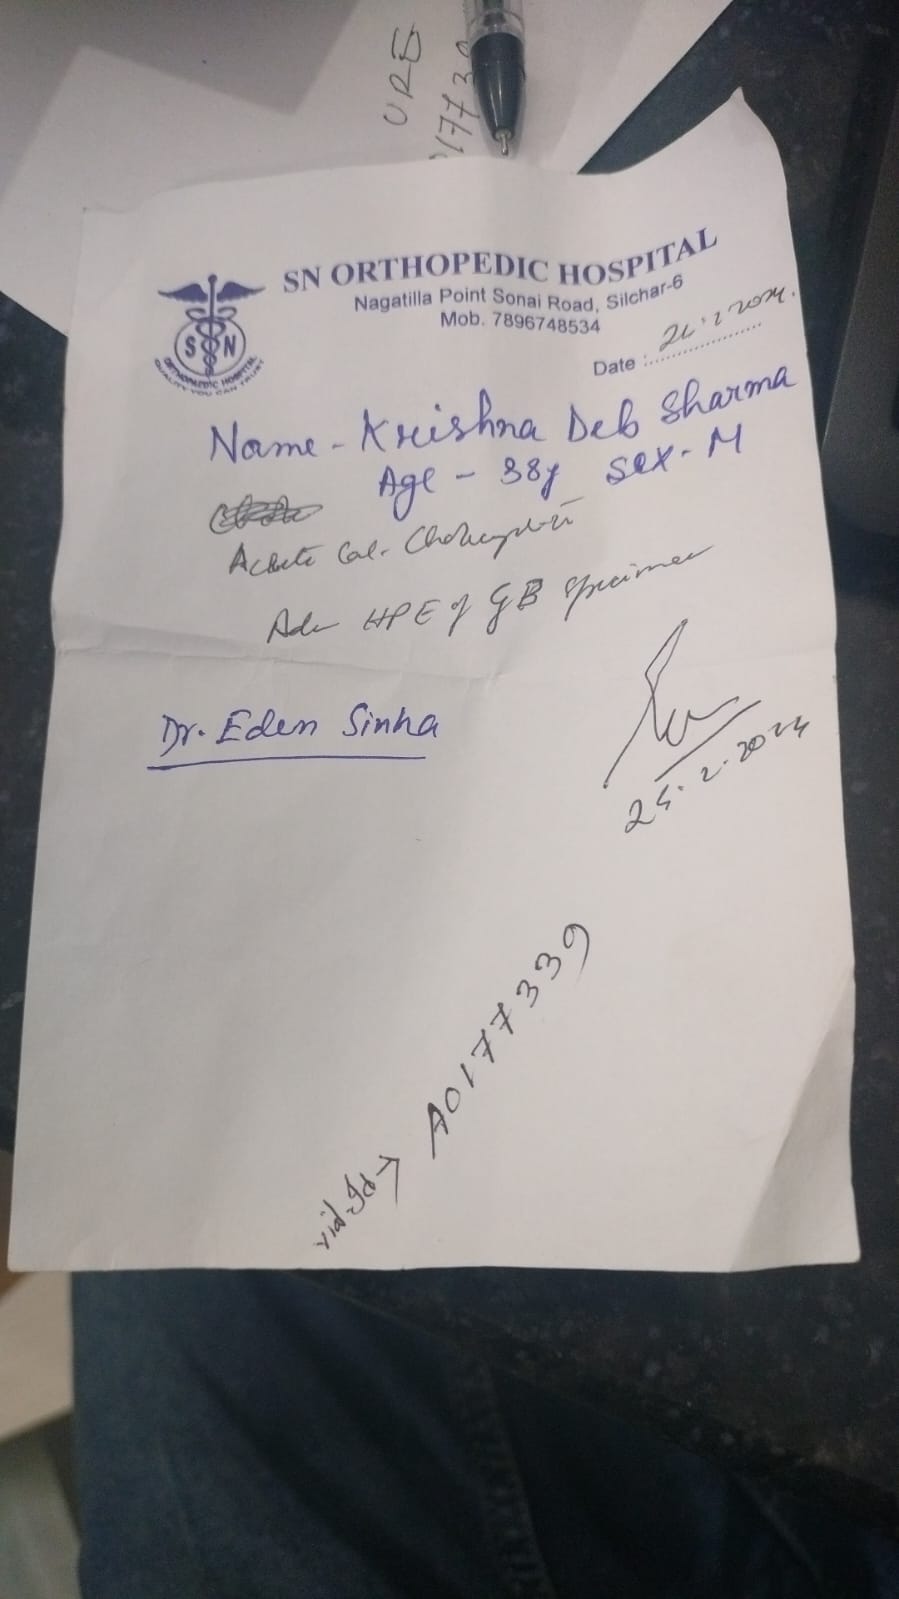 URE
177339
SN ORTHOPEDIC HOSPITAL
Nagatilla Point Sonai Road, Silchar-6
Mob. 7896748534
S N
ORTHOPAEDIC HOSPITAL
QUALITY YOU CAN TRUST
Date :
Name - Krishna Deb Sharma
Age - 38y Sex - M
Acute Cal. 
Adv HPE of GB Specimen
Dr. Eden Sinha
2.2024
vid Id → A0177339